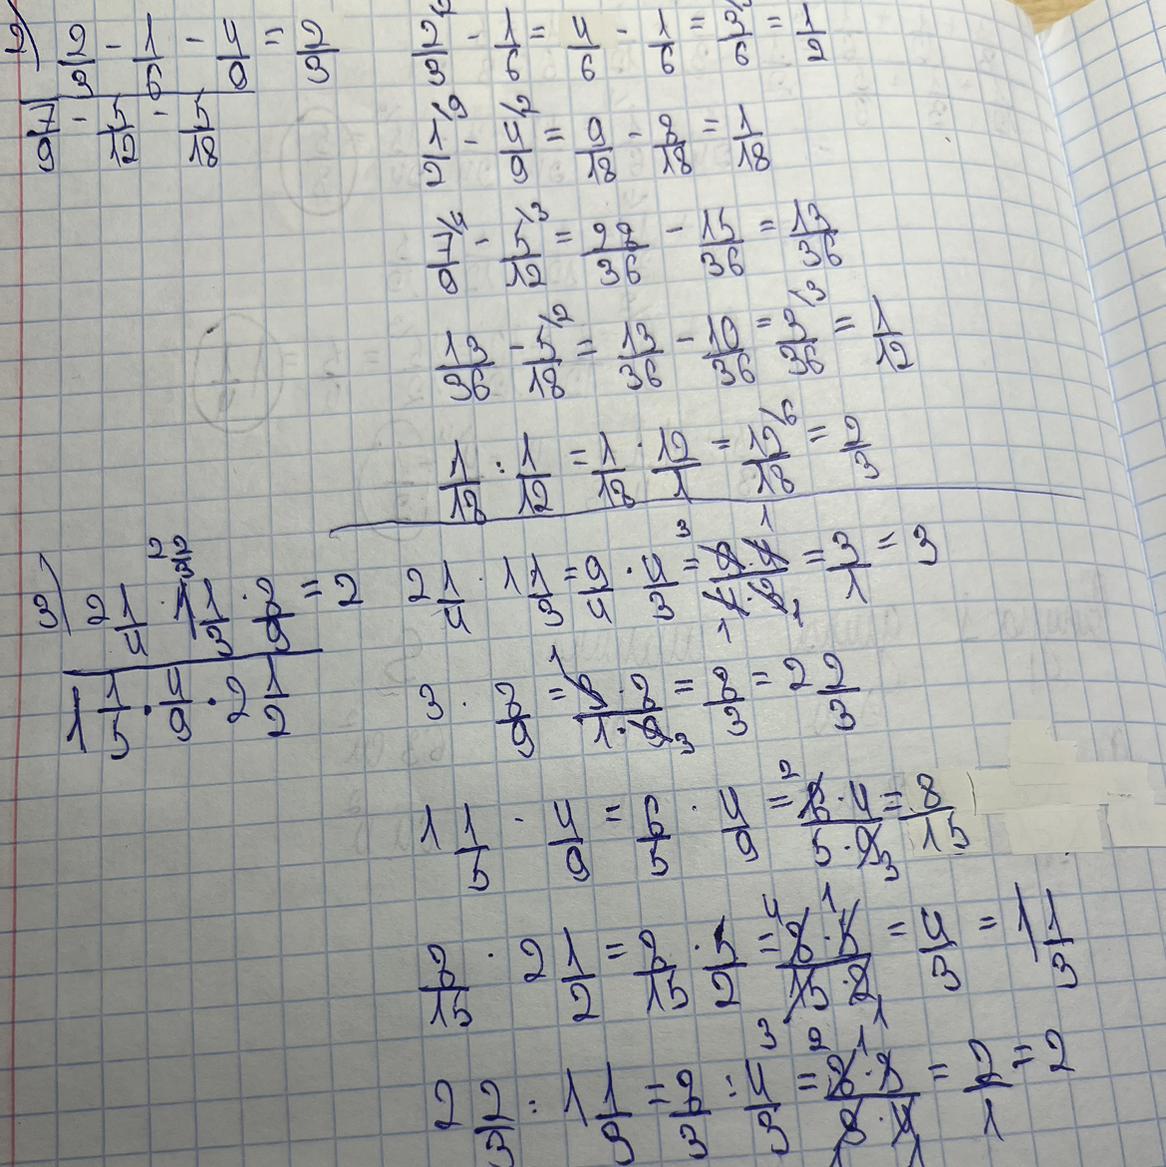 2) (2/3 - 1/6 - 4/9) / (7/9 - 5/12 - 5/18) = 2/3
2/3\2 - 1/6 = 4/6 - 1/6 = 3/6\3 = 1/2
1/2\9 - 4/9\2 = 9/18 - 8/18 = 1/18
7/9\4 - 5/12\3 = 28/36 - 15/36 = 13/36
13/36 - 5/18\2 = 13/36 - 10/36 = 3/36\3 = 1/12
1/18 : 1/12 = 1/18 · 12/1 = 12/18\6 = 2/3
3) (2 1/4 · 1 1/3 · 8/9) / (1 1/5 · 4/9 · 2 1/2) = 2
2 1/4 · 1 1/3 = 9/4 · 4/3 = 9·4/4·3 = 3/1 = 3
3 · 8/9 = 3·8/1·9 = 8/3 = 2 2/3
1 1/5 · 4/9 = 6/5 · 4/9 = 6·4/5·9 = 8/15
8/15 · 2 1/2 = 8/15 · 5/2 = 8·5/15·2 = 4/3 = 1 1/3
2 2/3 : 1 1/3 = 8/3 : 4/3 = 8·3/3·4 = 2/1 = 2